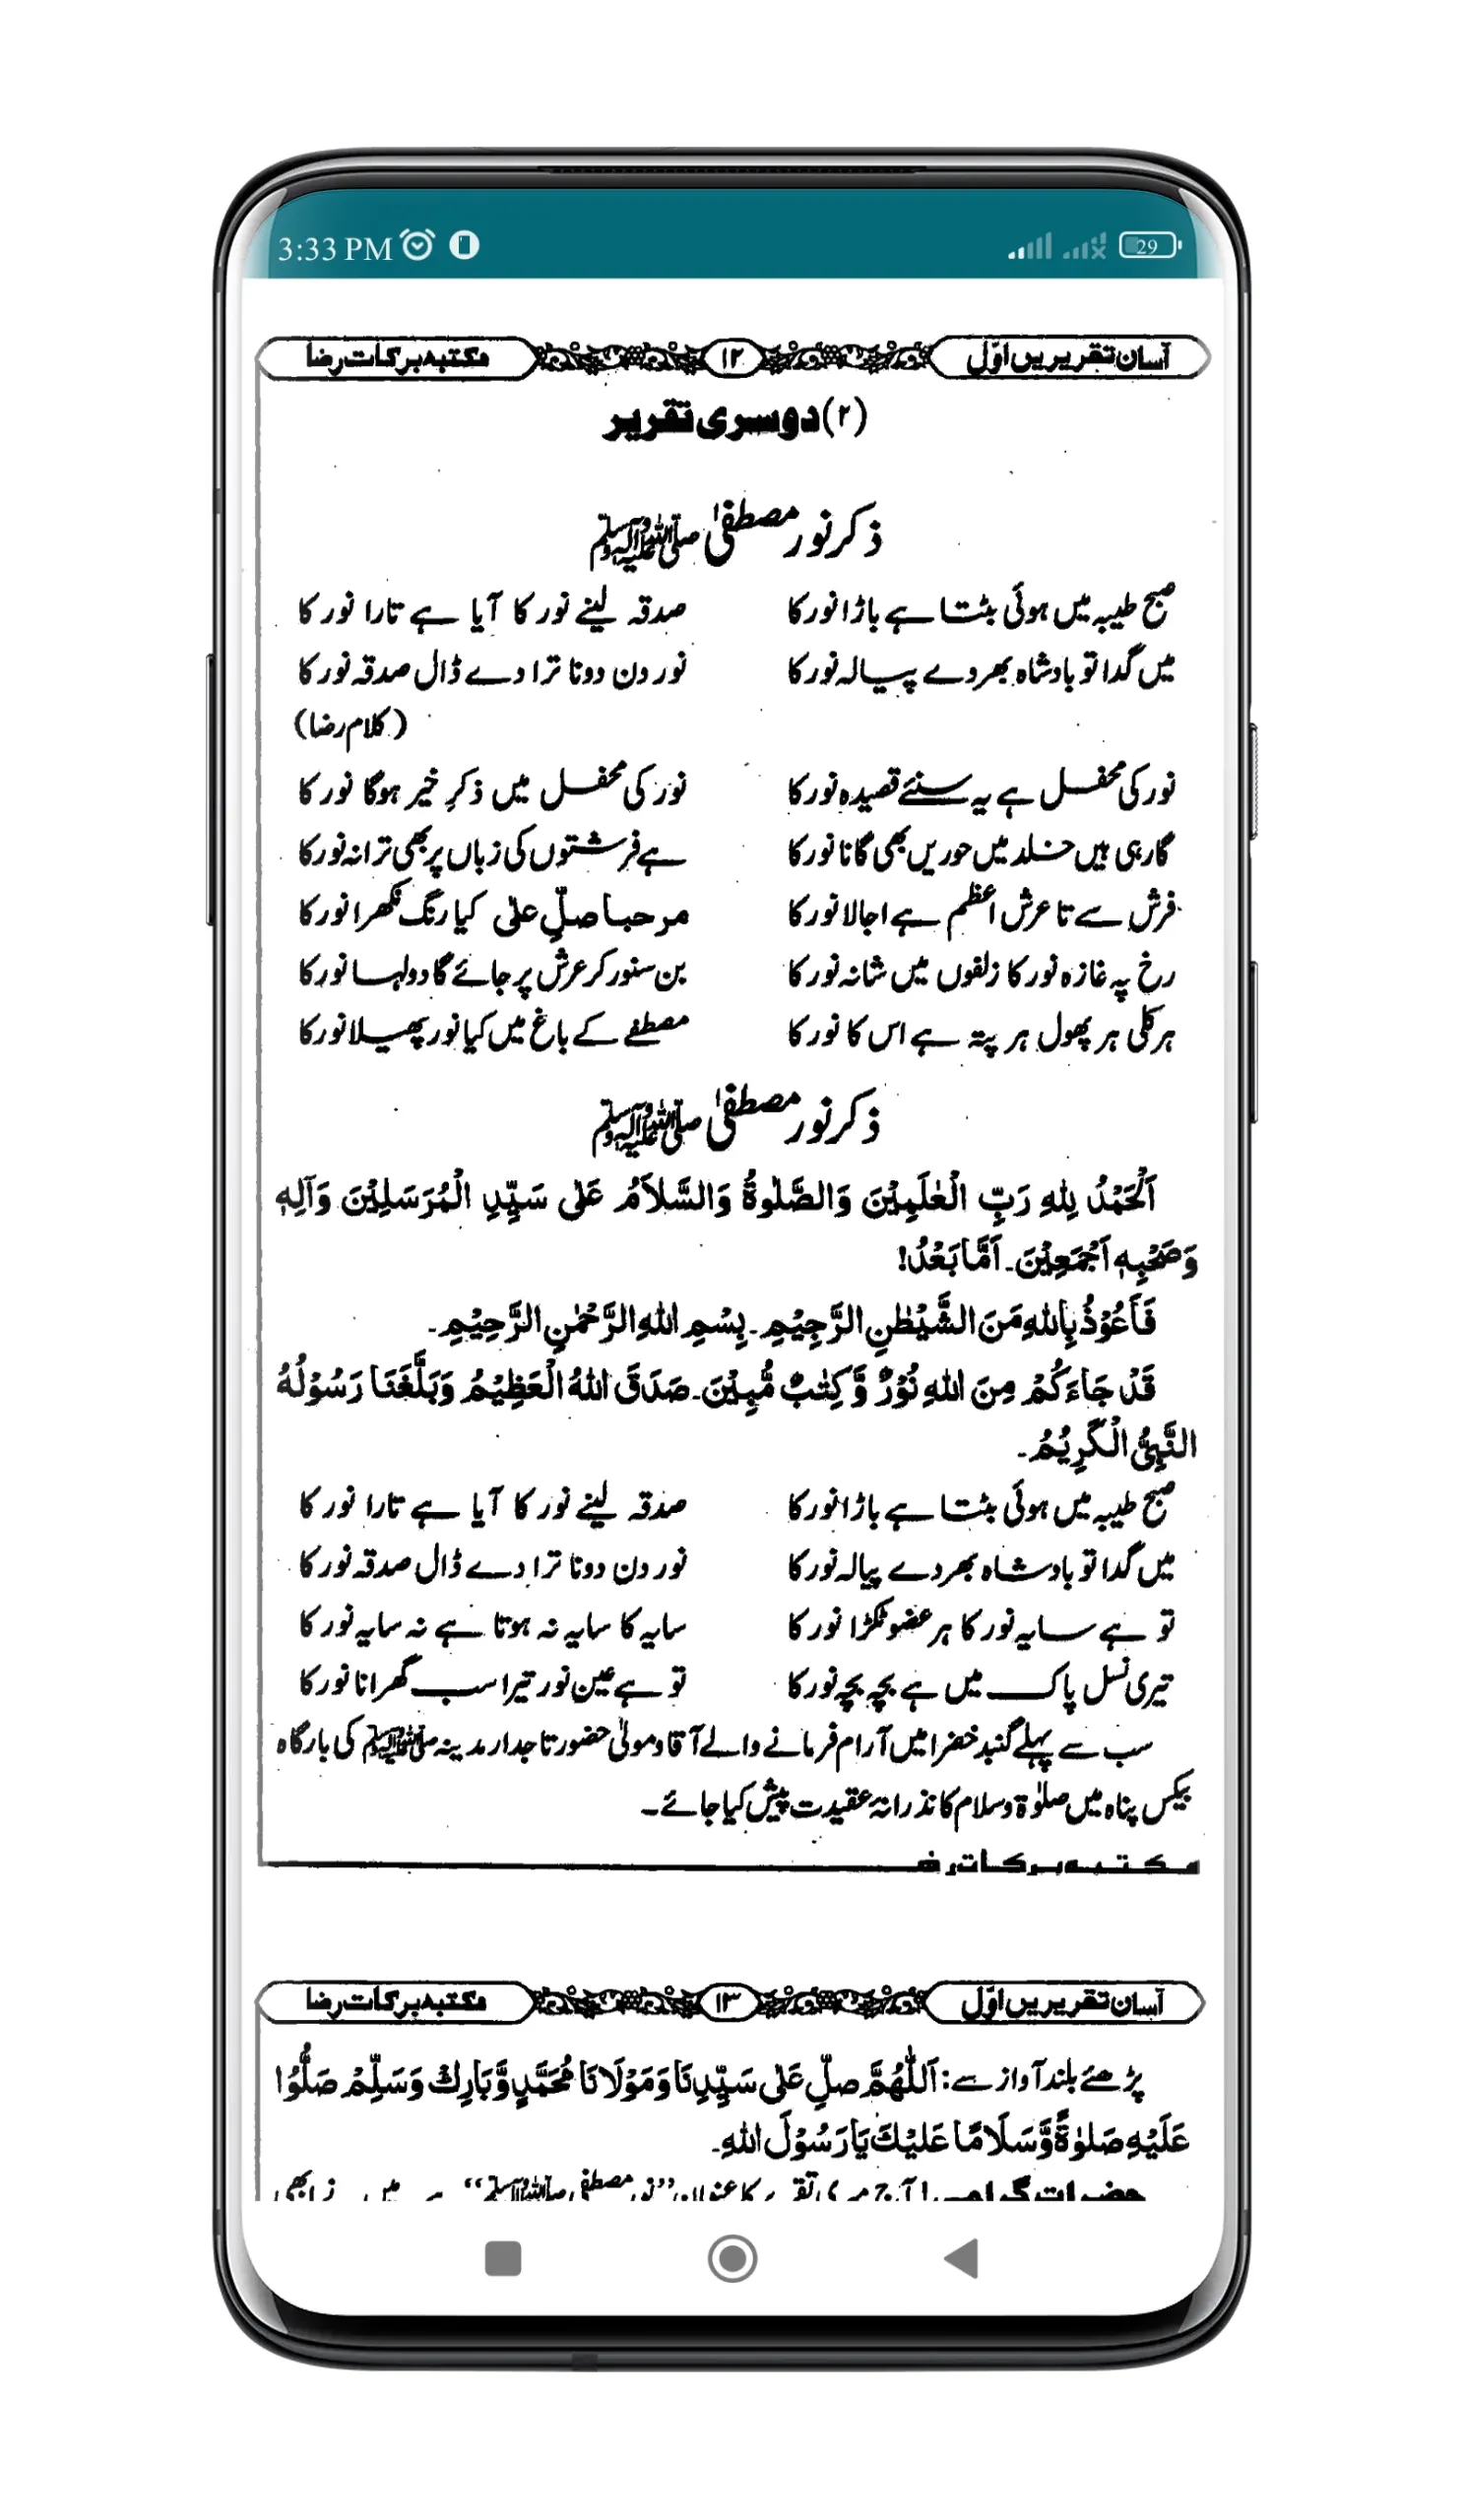 3:33 PM
29
آسان تقریریں اوّل ۱۲ مکتبہ برکات رضا
(۲) دوسری تقریر
ذکر نور مصطفیٰ ﷺ
صبح طیبہ میں ہوئی بٹتا ہے باڑا نور کا صدقہ لینے نور کا آیا ہے تارا نور کا
میں گدا تو بادشاہ بھر دے پیالہ نور کا نور دن دونا ترا دے ڈال صدقہ نور کا
(کلام رضا)
نور کی محفل ہے یہ سنئے قصیدہ نور کا نور کی محفل میں ذکرِ خیر ہوگا نور کا
گا رہی ہیں خلد میں حوریں بھی گانا نور کا ہے فرشتوں کی زباں پر بھی ترانہ نور کا
فرش سے تا عرش اعظم ہے اجالا نور کا مرحبا صلِّ علیٰ کیا رنگ نکھرا نور کا
رخ پہ غازہ نور کا زلفوں میں شانہ نور کا بن سنور کر عرش پر جائے گا دولہا نور کا
ہر کلی ہر پھول ہر پتہ ہے اس کا نور کا مصطفےٰ کے باغ میں کیا نور پھیلا نور کا
ذکر نور مصطفیٰ ﷺ
اَلْحَمْدُ لِلّٰہِ رَبِّ الْعٰلَمِیْنَ وَالصَّلٰوۃُ وَالسَّلاَمُ عَلٰی سَیِّدِ الْمُرْسَلِیْنَ وَآلِہٖ
وَصَحْبِہٖ اَجْمَعِیْنَ۔ اَمَّا بَعْدُ!
فَاَعُوْذُ بِاللّٰہِ مِنَ الشَّیْطٰنِ الرَّجِیْمِ۔ بِسْمِ اللّٰہِ الرَّحْمٰنِ الرَّحِیْمِ۔
قَدْ جَاءَکُمْ مِنَ اللّٰہِ نُوْرٌ وَّکِتٰبٌ مُّبِیْنَ۔ صَدَقَ اللّٰہُ الْعَظِیْمُ وَبَلَّغَنَا رَسُوْلُہُ
النَّبِیُّ الْکَرِیْمُ۔
صبح طیبہ میں ہوئی بٹتا ہے باڑا نور کا صدقہ لینے نور کا آیا ہے تارا نور کا
میں گدا تو بادشاہ بھر دے پیالہ نور کا نور دن دونا ترا دے ڈال صدقہ نور کا
تو ہے سایہ نور کا ہر عضو ٹکڑا نور کا سایہ کا سایہ نہ ہوتا ہے نہ سایہ نور کا
تیری نسل پاک میں ہے بچہ بچہ نور کا تو ہے عین نور تیرا سب گھرانا نور کا
سب سے پہلے گنبد خضرا میں آرام فرمانے والے آقا و مولیٰ حضور تاجدار مدینہ ﷺ کی بارگاہ
بیکس پناہ میں صلوٰۃ و سلام کا نذرانۂ عقیدت پیش کیا جائے۔
مکتبہ برکات رضا
آسان تقریریں اوّل ۱۳ مکتبہ برکات رضا
پڑھئے بلند آواز سے: اَللّٰہُمَّ صَلِّ عَلٰی سَیِّدِنَا وَمَوْلَانَا مُحَمَّدٍ وَّبَارِکْ وَسَلِّمْ صَلُّوْا
عَلَیْہِ صَلٰوۃً وَّسَلَامًا عَلَیْکَ یَا رَسُوْلَ اللّٰہِ۔